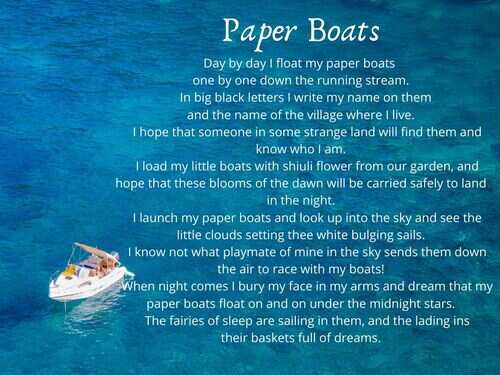 Paper Boats
Day by day I float my paper boats
one by one down the running stream.
In big black letters I write my name on them
and the name of the village where I live.
I hope that someone in some strange land will find them and
know who I am.
I load my little boats with shiuli flower from our garden, and
hope that these blooms of the dawn will be carried safely to land
in the night.
I launch my paper boats and look up into the sky and see the
little clouds setting thee white bulging sails.
I know not what playmate of mine in the sky sends them down
the air to race with my boats!
When night comes I bury my face in my arms and dream that my
paper boats float on and on under the midnight stars.
The fairies of sleep are sailing in them, and the lading ins
their baskets full of dreams.